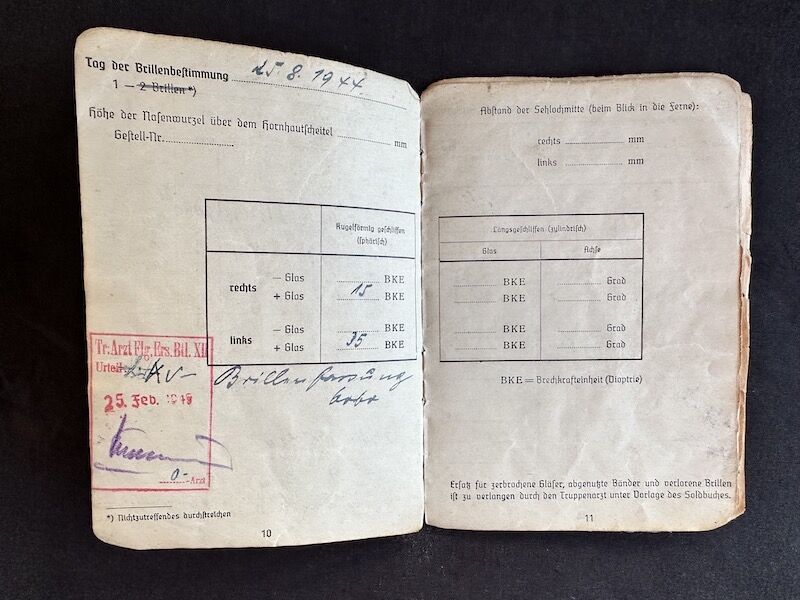 Tag der Brillenbestimmung 25.8.1944
1 — 2 Brillen *)
Höhe der Nasenwurzel über dem Hornhautscheitel mm
Gestell-Nr.
Kugelförmig geschliffen
(sphärisch)
rechts — Glas BKE
+ Glas 15 BKE
links — Glas BKE
+ Glas 35 BKE
Tr. Arzt Flg. Ers. Btl. XII
Urteil: Kv-
25. Feb.
Brillenfassung
0- Arzt
*) Nichtzutreffendes durchstreichen
10
Abstand der Sehlochmitte (beim Blick in die Ferne):
rechts mm
links mm
Längsgeschliffen (zylindrisch)
Glas Achse
BKE Grad
BKE Grad
BKE Grad
BKE Grad
BKE = Brechkrafteinheit (Dioptrie)
Ersatz für zerbrochene Gläser, abgenutzte Bänder und verlorene Brillen
ist zu verlangen durch den Truppenarzt unter Vorlage des Soldbuches.
11